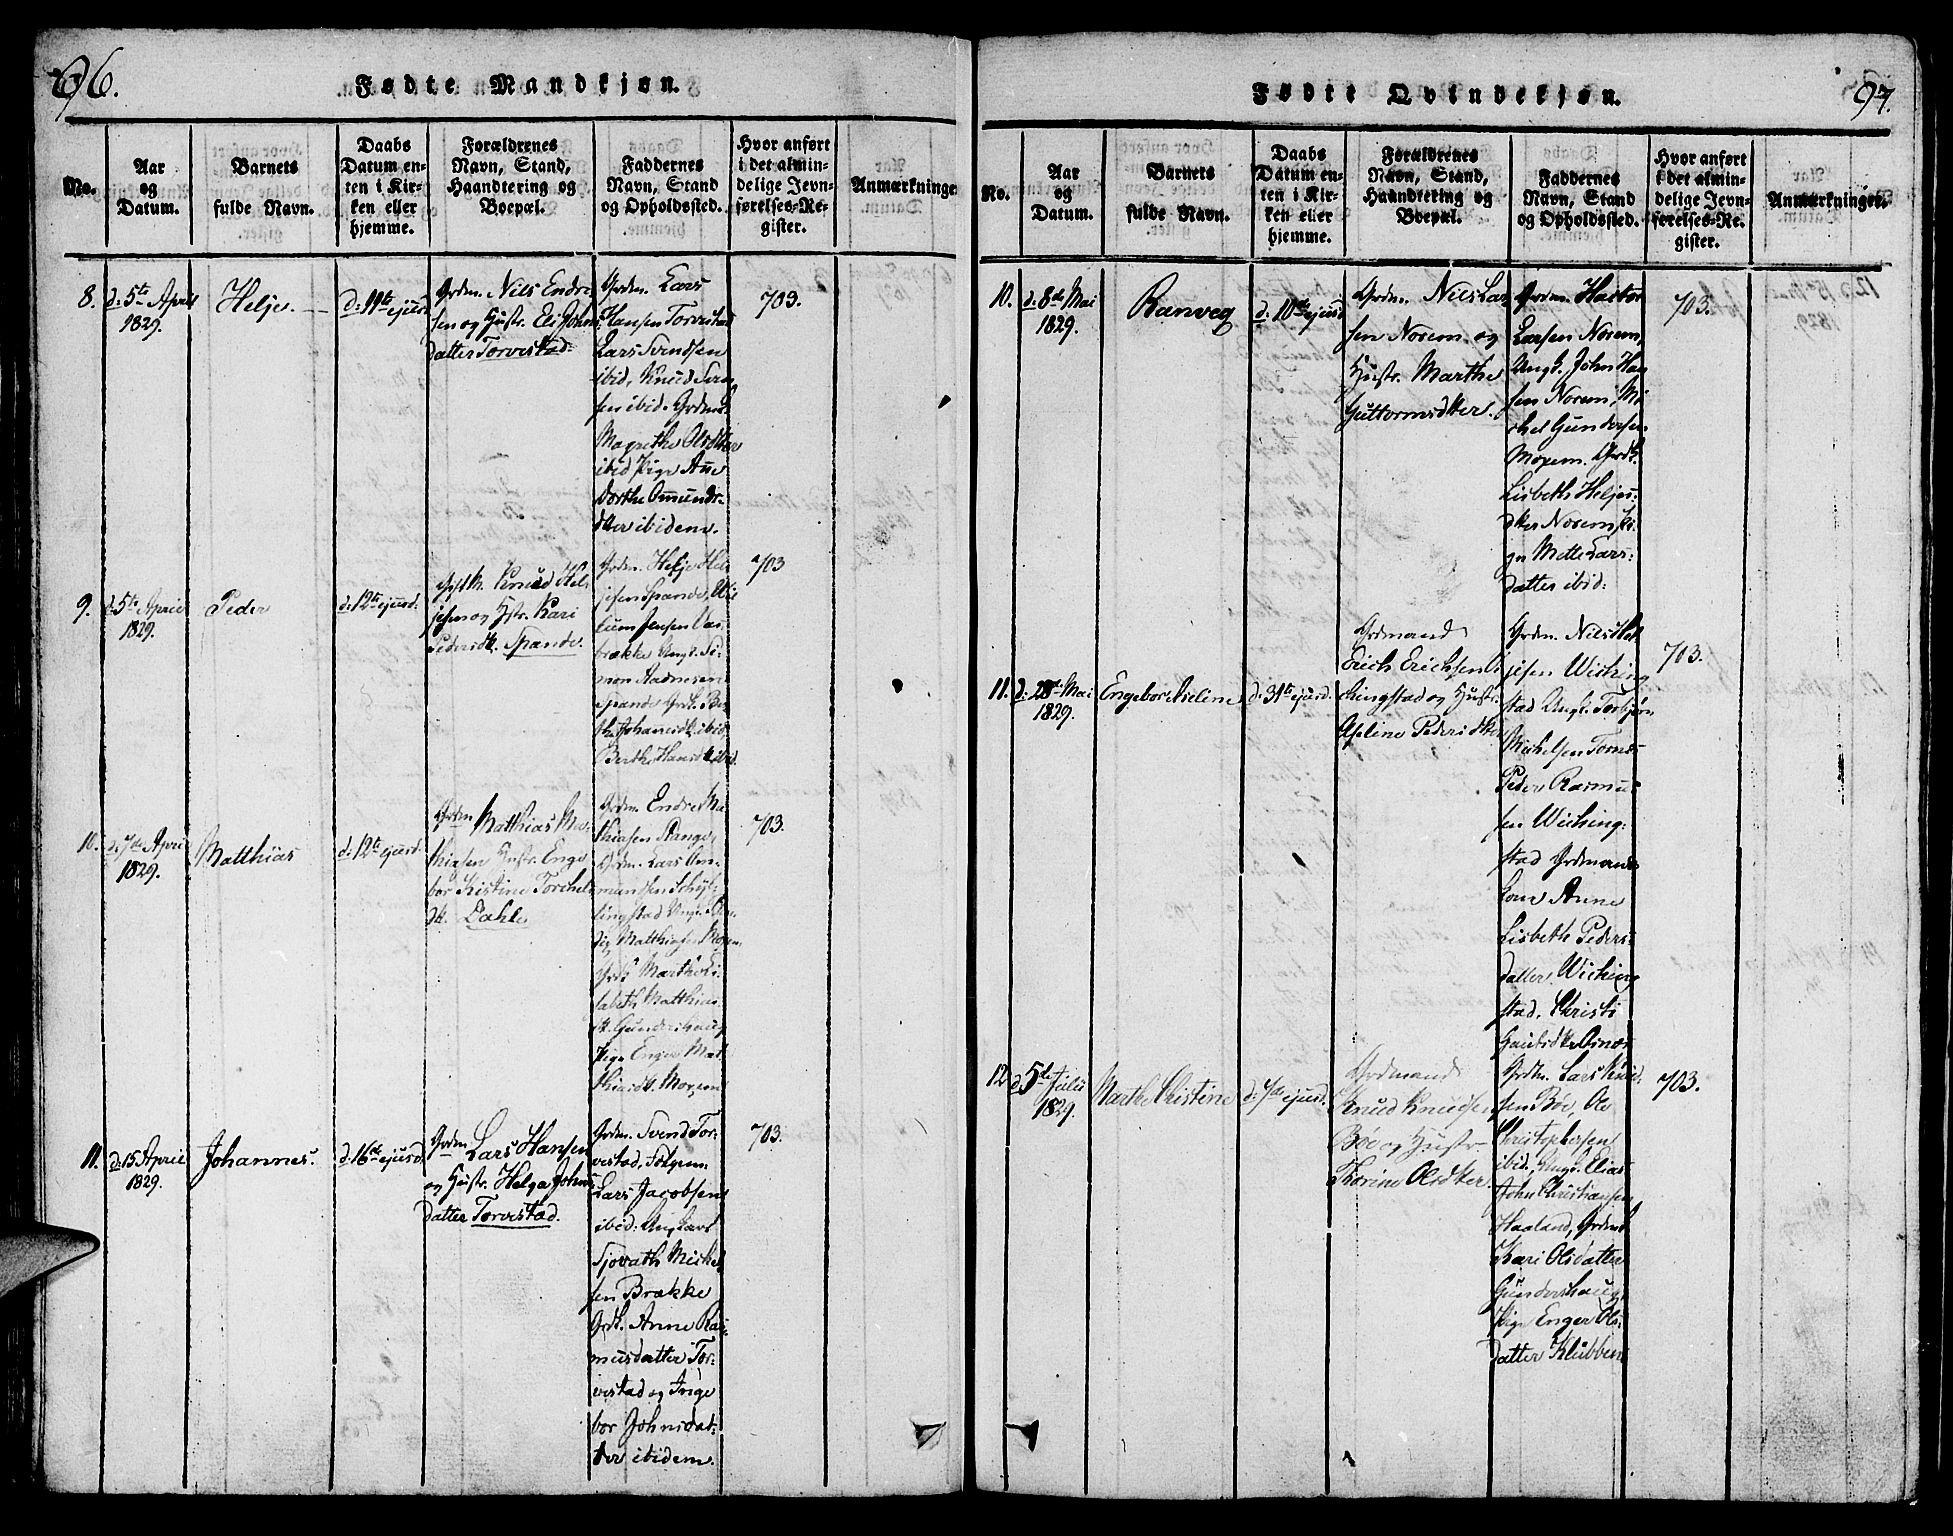 96.
Fødte Mandkjøn.
No.
Aar
og
Datum.
Barnets
fulde Navn.
Daabs
Datum en-
ten i Kir-
ken eller
hjemme.
Forældrenes
Navn, Stand,
Haandtering og
Boepæl.
Faddernes
Navn, Stand
og Opholdssted.
Hvor anført
i det almin-
delige Jevn-
førelses-Re-
gister.
Anmærkninge
8.
d: 5te April
1829.
Helje.
d: 11te ejusd.
Grdm. Nils Endre
sen og Hustr. Eli Johns
datter Torvestad.
Grdm. Lars
Hansen Torvestad
Lars Svendsen
ibid, Knud Sven
sen ibid. Grdmd.
Magrethe Olsdtter
ibid Pige Ane
Dorthe Omunds-
dtter ibidem.
703.
9.
d: 5te April
1829.
Peder
d: 12te ejusd:
Knud Hel
jesen og Hstr. Kari
Pedersdt. Spande.
Grdm. Helje Hel
jesen Spande,
Jensen
brække Ungk. Si
mon Aadnesen
Spande
Johannsdt. ibid
Berthe Hansdt ibid.
703
10.
d: 7de April
1829.
Matthias
d: 12te ejusd.
Grdm Matthias Ma-
thiasen Hustr. Enge
bor Kistine Torchels
dt. Dahle
Grdm. Endre Ma
thiasen Stange,
Grdm. Lars Om-
mundsen Schjel-
lingstad Ungk.
Matthiasen
Marthe Li
sabeth Matthias
dt. Gundershaug
Pige Enger Mat
thiasdt.
703.
11.
d: 15 April
1829.
Johannes.
d: 16te ejusd
Grdm Lars Hansen
og Hustr. Helga Johns
datter Torvestad.
Grdm. Svend Tor-
vestad,
Lars Jacobsen
ibid: Ungkarl
Sjovath Mickel
sen Brække
Grdk. Anne Ras-
musdatter Tor-
vestad og Inge
bor Johnsdat-
ter ibidem.
703.
97.
Fødte Qvindekjøn.
No.
Aar
og
Datum.
Barnets
fulde Navn.
Daabs
Datum en-
ten i Kir-
ken eller
hjemme.
Forældrenes
Navn, Stand,
Haandtering og
Boepæl.
Faddernes
Navn, Stand
og Opholdssted.
Hvor anført
i det almin-
delige Jevn-
førelses-Re-
gister.
Anmærkninger.
10.
d: 8de Mai
1829.
Ranveg
d: 10de ejusd
Grdm. Nils Lar
sen Norem og
Hustr. Marthe
Guttormsdtter.
Grdm. Hactor
Larsen Norem,
Ungk. John Han
sen Norem, Mi
chel Gundersen
Moxem.
Lisbeth Heljes-
dtter Norem, Pi
ge Mette Lars-
datter ibid:
703.
11.
d: 28de Mai
1829.
Engebor Aseline
d: 31te ejusd.
Grdmand
Erich Erichsen
chingstad og Hustr.
Aseline Pedersdtter
Grdm. Nils Hel
jesen Wiching
stad Ungk. Torbjørn
Michelsen
Peder Rasmus
sen Wiching-
stad Grdmands
kone Anne
Lisbeth Peders-
datter. Wiching
stad. Christi
703.
12
d: 5te Julii
1829.
Marthe Christine
d: 7de ejusd.
Grdmand
Knud Knudsen
Bøe og Hustr
Thorine Olsdtter.
Grdm. Lars Knud-
sen Bøe, Ole
Christophersen
ibid, Ungk. Elias
John Christiansen
Haaland, Grdmd.
Kari Olsdatter
Gundershaug,
Pige Enger Ols-
datter Klubben
703.